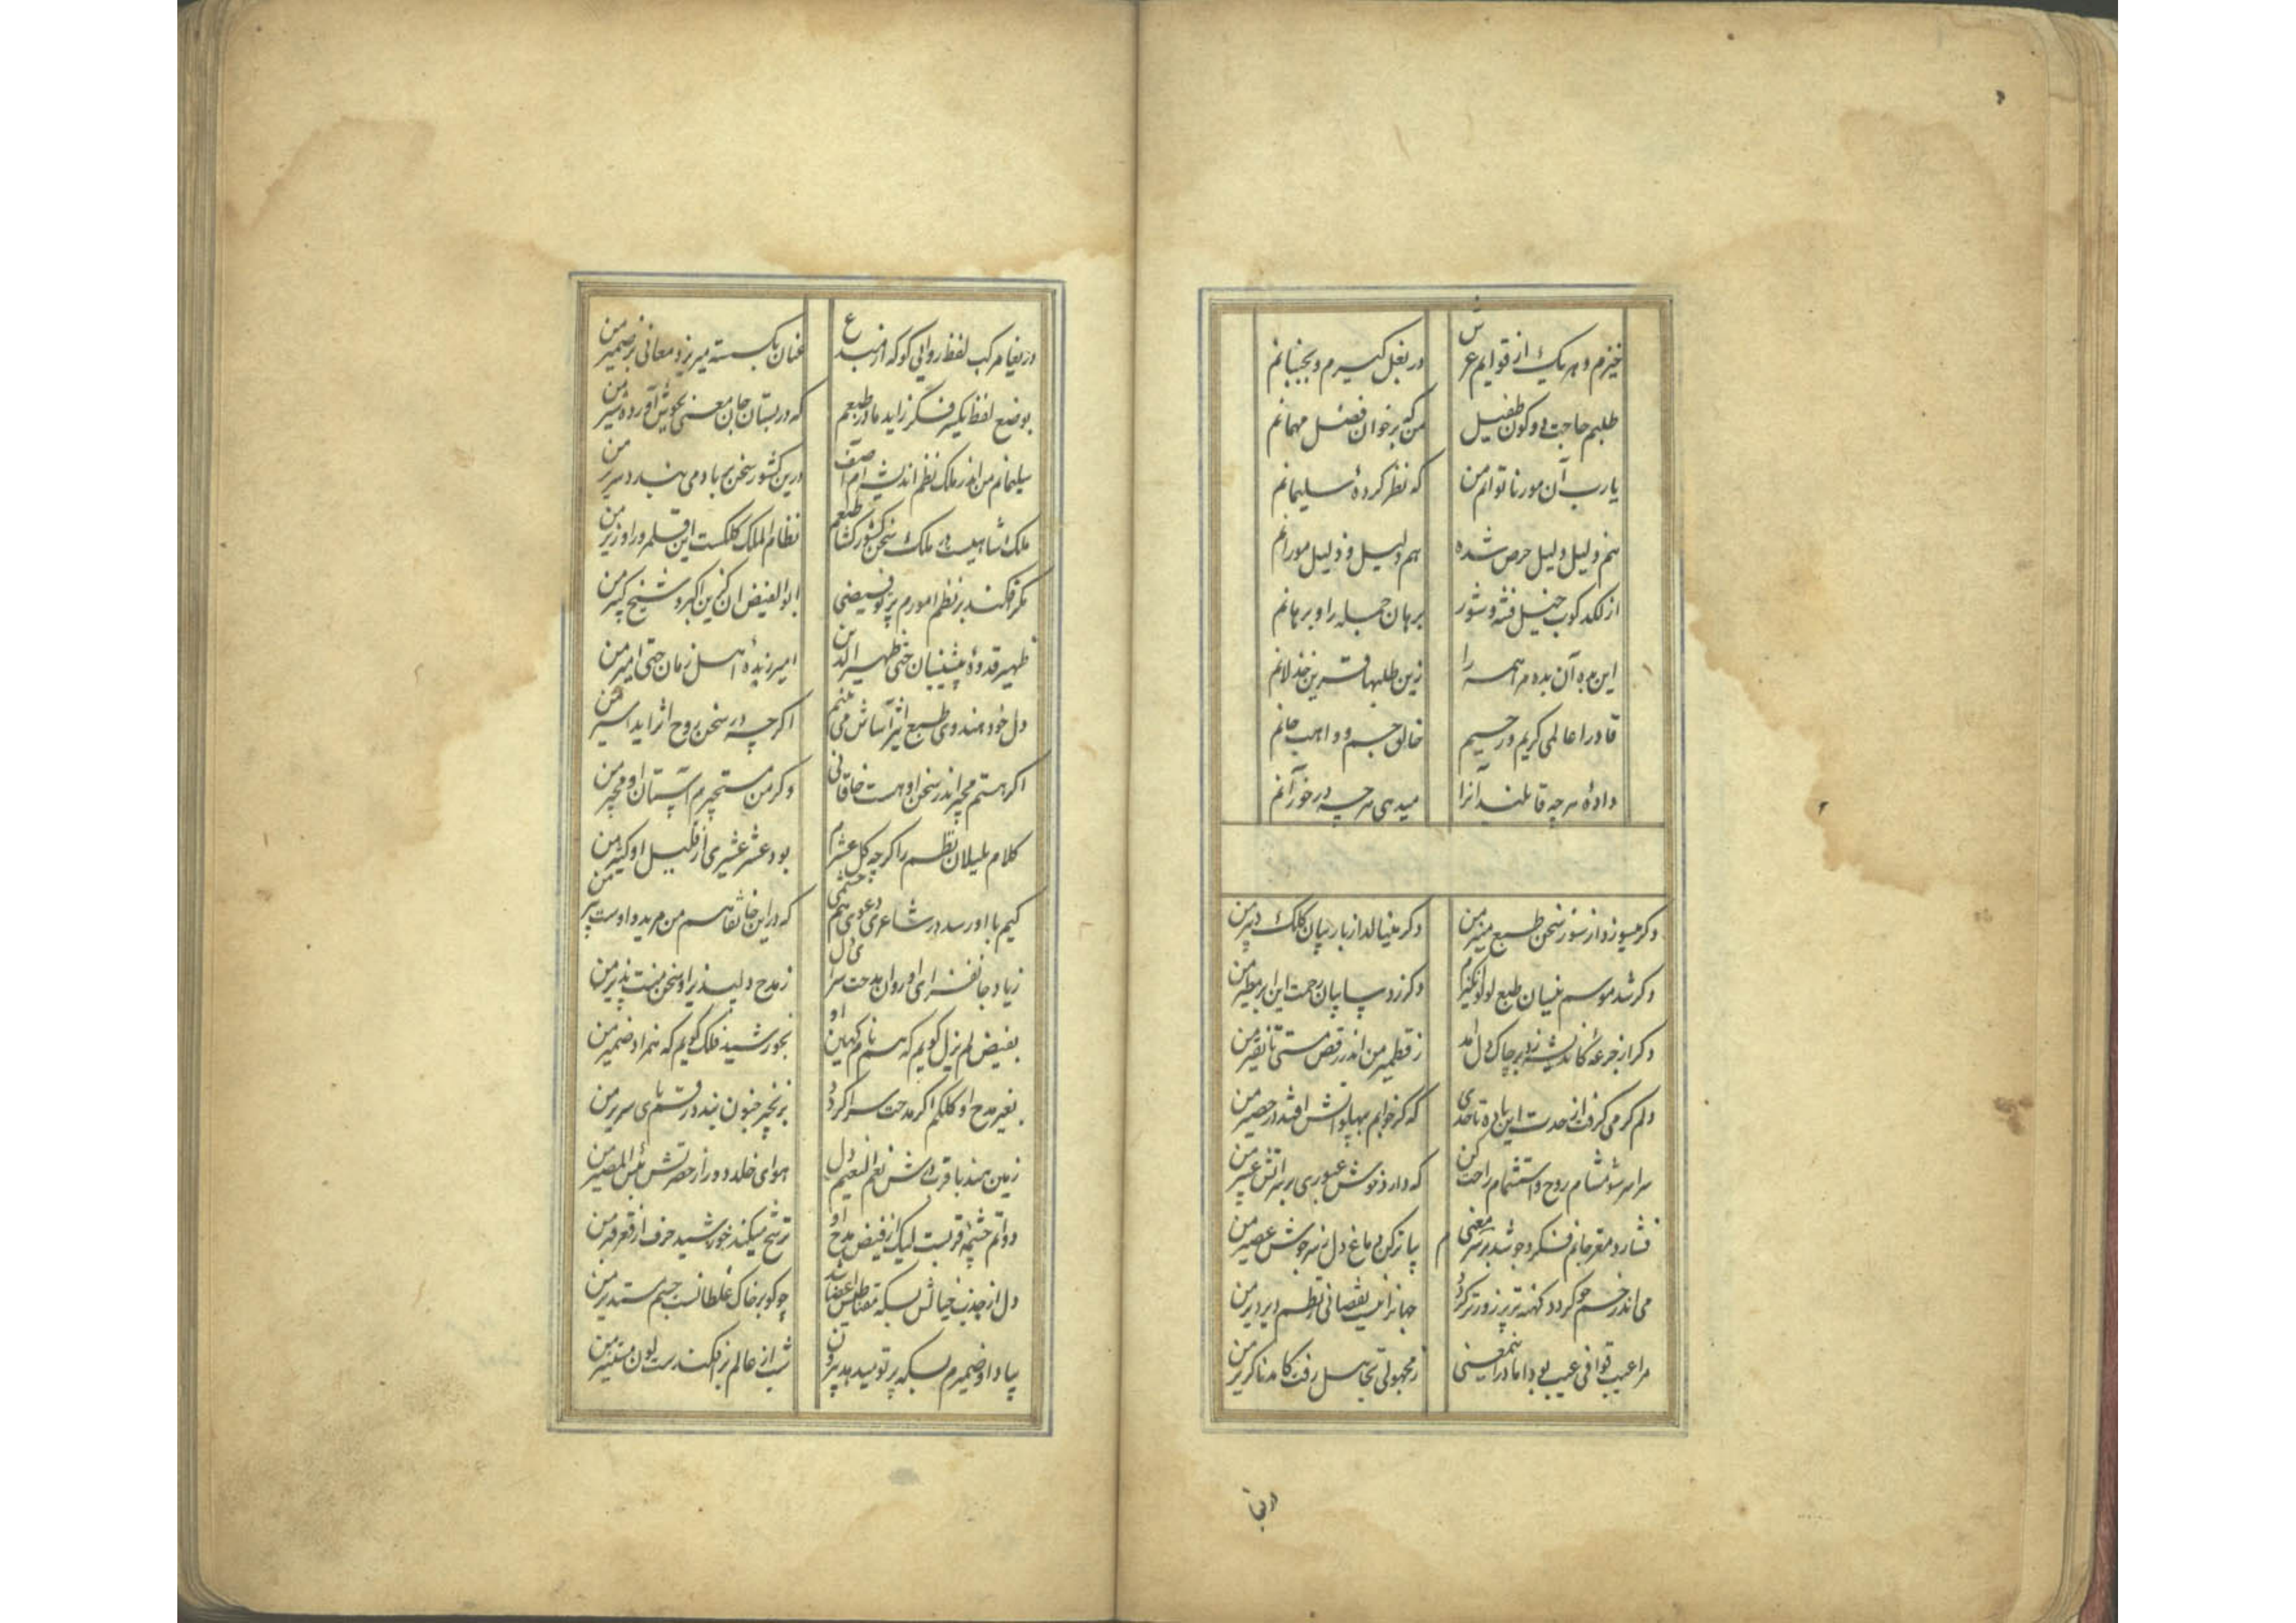 خیزم و هر یک از قوایم عرش در بغل گیرم و بجنبانم
طلبم حاجت دو کون طفیل من که بر خوان فضل مهمانم
یارب آن مور ناتوانم من که نظر کردهٔ سلیمانم
هم دلیل و لیل حرص شده هم دلیل و ذلیل مورانم
از لکدکوب خیل فتنه و شور برهان جمله را و برهانم
این بده آن بده مر همه را زین طلبها قرین خذلانم
قادرا عالمی کریم و رحیم خالق جسم و واهب جانم
دادهٔ هر چه قابلند آنرا میدهی هر چه در خور آنم
دکر میسوزد از سوز سخن طبع منیر من دکر مینالد از بار بیان کلک دبیر من
دکر شد موسم نیسان طبع لولوانکیزم دکر زد سایبان رحمت این ابر مطیر من
دکر از جرعهٔ کاندیشه زد بر چاک دل آمد ز قطمیر من اندر رقص مستی تا نقیر من
دلم کر می کرفت از حدت این باده تا حدی که کر خوابم بپهلو آتش افتد در حصیر من
سراسر شو مشام روح و استشمام راحت کن که دارد خوش عبوری بر سر آتش عبیر من
فشارد مغز جانم فکر و جوشد بر سر معنی بیا تر کن دماغ دل ز سرجوش عصیر من
می اندر خم چو کردد کهنه تر پر زورتر کردد جهانرا نیست نقصانی ز نظم دیر دیر من
مرا عیب قوافی عیب بود اما درین معنی ز مجهولی تجاهل رفت کامد ناکزیر من
دریغا
دریغا مرکب لفظ روانی کو که از مبدع عنان بکسسته میریزد معانی بر ضمیر من
بوضع لفظ یکسر فکر زاید مادر طبعم که در بستان جان معنی بجوش آورده شیر من
سلیمانم من اندر ملک نظم اندیشه ام آصف درین کشور سخن بر باد می بندد سریر من
ملکشاهیست در ملک سخن کشورکشا طبعم نظام الملک کلکست این قلمرو را وزیر من
مکر افکند بر نظم امورم پرتو فیضی ابوالفیض آن کزین اکبر و شیخ کبیر من
ظهیر قدوهٔ پیشینیان حتی ظهیر الدین امیر زبدهٔ اهل زمان حتی امیر من
دل خود هندوی طبع اثیر آساش می بینم اکر چه در سخن روح اثر آید اسیر من
اکر هستم مجیر اندر سخن او هست خاقانی و کر من مستجیرم آستان او مجیر من
کلام بلبلان نظم را کر چه کل عشرم بود عشر عشیری از قلیل او کثیر من
کیم با او رسد در شاعری دعوی هم چشمی که در این خانقاه هم من مرید و اوست پیر من
ز یاد جانفزای او روان مدحت سرای دل ز مدح دلپذیر او سخن منت پذیر من
بفیض لم یزل کویم که هم نام کهین او بخورشید فلک کویم که همراد ضمیر من
بغیر مدح او کلکم اکر مدحت سرا کردد بزنجیر جنون بندد رقم پای سریر من
زمین هند با قرب درش نعم النعیم دل هوای خلد دور از حضرتش بئس المصیر من
دواتم چشمهٔ قیرست لیک از فیض مدح او ترشح میکند خورشید حرف از قعر قیر من
دل از جذب خیالش بسکه مقناطیس اعضا شد چو کو بر خاک غلطانست جسم مستدیر من
بیاد او ضمیرم بسکه پرتو میدهد بیرون شب از عالم برافکندست لون مستنیر من